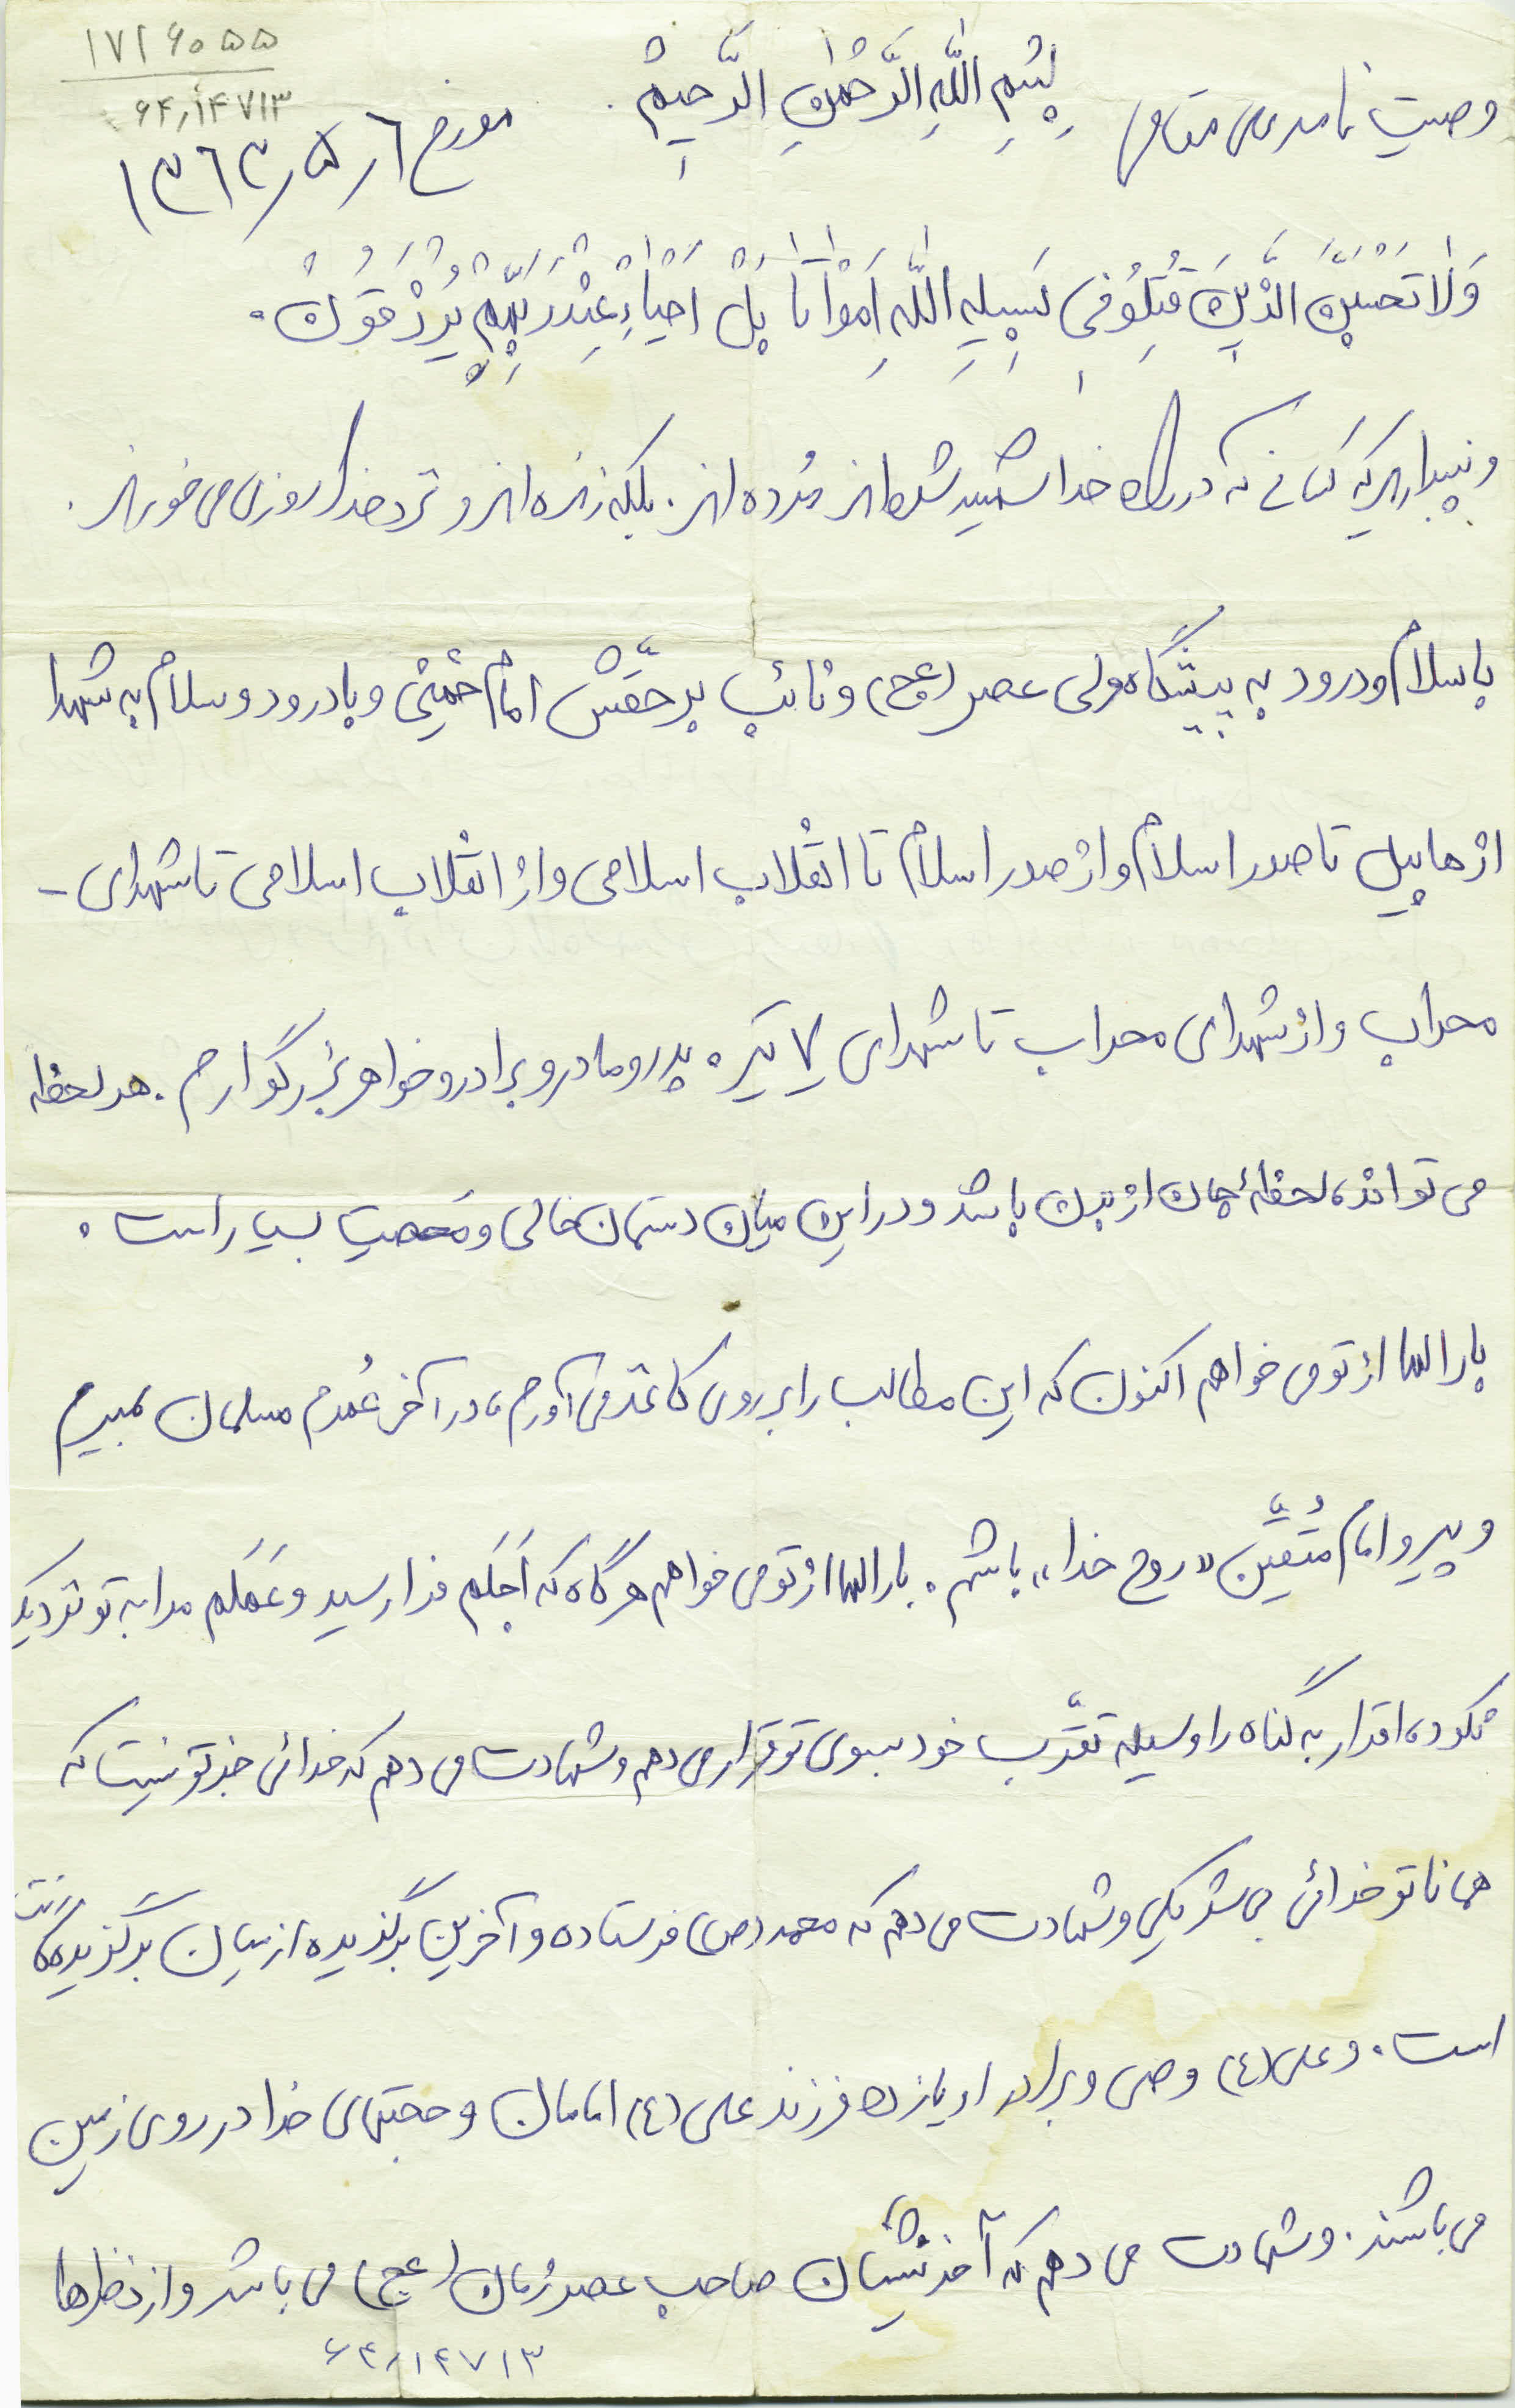 ۱۷۱۶۰۵۵
۶۴٫۱۴۷۱۳
بِسْمِ اللَّهِ الرَّحْمٰنِ الرَّحِيمْ .
وصیت نامه
مورخ ۱۳۶۳/۵/۶
وَلَا تَحْسَبَنَّ الَّذِينَ قُتِلُوْ فِي سَبِيلِ اللَّهِ اَمْوٰاتاً بَلْ اَحْيٰاءِ عِنْدَ رَبِّهِمْ يُرْزَقُونْ .
و نپندارید که کسانی که در راه خدا شهید شده‌اند مُرده‌اند . بلکه زنده‌اند و نزد خدا روزی می‌خورند .
با سلام و درود به پیشگاه ولی عصر (عج) و نائب برحقَّش امام خمینی و با درود و سلام به شهدا
از هابیل تا صدر اسلام و از صدر اسلام تا انقلاب اسلامی و از انقلاب اسلامی تا شهدای -
محراب و از شهدای محراب تا شهدای ۷ تیر . پدر و مادر و برادر و خواهر بزرگوارم . هر لحظه
می‌تواند، لحظهٔ جان از بدن باشد و در این میان دستمان خالی و مَعصیت بسیار است .
بارالها از تو می‌خواهم اکنون که این مطالب را بر روی کاغذ می‌آورم، در آخر عُمرم مسلمان بمیرم
و پیرو امام مُتقّین "روح خدا" باشم . بارالها از تو می‌خواهم هرگاه که اَجَلَم فرا رسید و عَمَلَم مرا به تو نزدیک
نکرد، اقرار به گناه را وسیله تقرّب خود بسوی تو قرار می‌دهم و شهادت می‌دهم که خدائی جز تو نیست که
همانا تو خدائی بی‌شریکی و شهادت می‌دهم که محمد (ص) فرستاده و آخرین برگزیده از میان برگزیدگانت
است . و علی (ع) وصی و برادر او یازده فرزند علی (ع) امامان و حجتهای خدا در روی زمین
می‌باشند . و شهادت می‌دهم که آخرینشان صاحب عصر زمان (عج) می‌باشد و از نظرها
۶۴٫۱۴۷۱۳